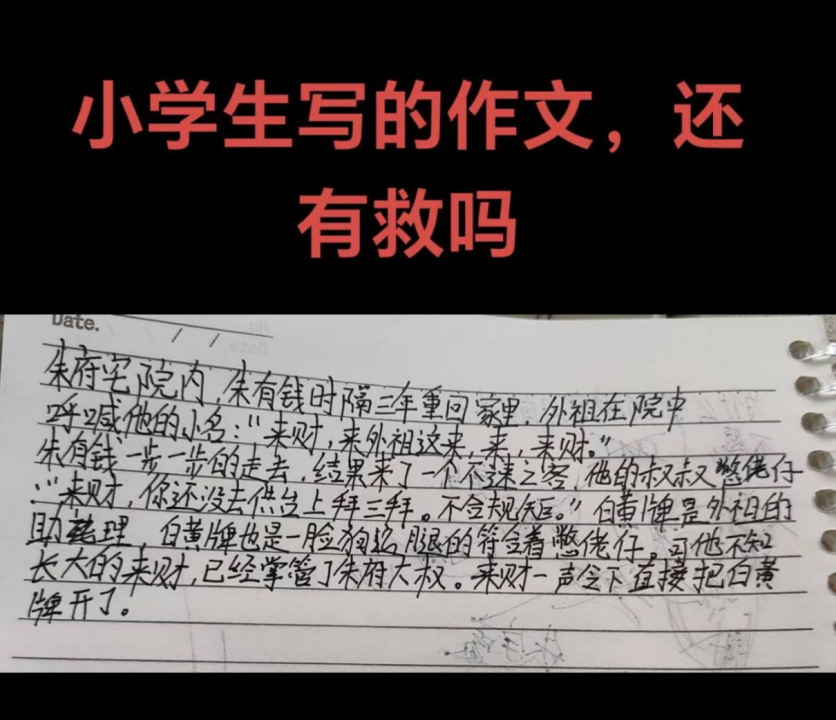 小学生写的作文，还
有救吗
Date.
朱府宅院内，朱有钱时隔三年重回家里，外祖在院中
呼喊他的小名：“来财，来外祖这来，来，来财。”
朱有钱一步一步的走去，结果来了一个不速之客，他的叔叔憋佬仔
：“来财，你还没去供台上拜三拜。不合规矩。”白黄牌是外祖的
助理，白黄牌也是一脸狗 腿的符合着憋佬仔。可他不知
长大的来财，已经掌管了朱府大权。来财一声令下直接把白黄
牌开了。